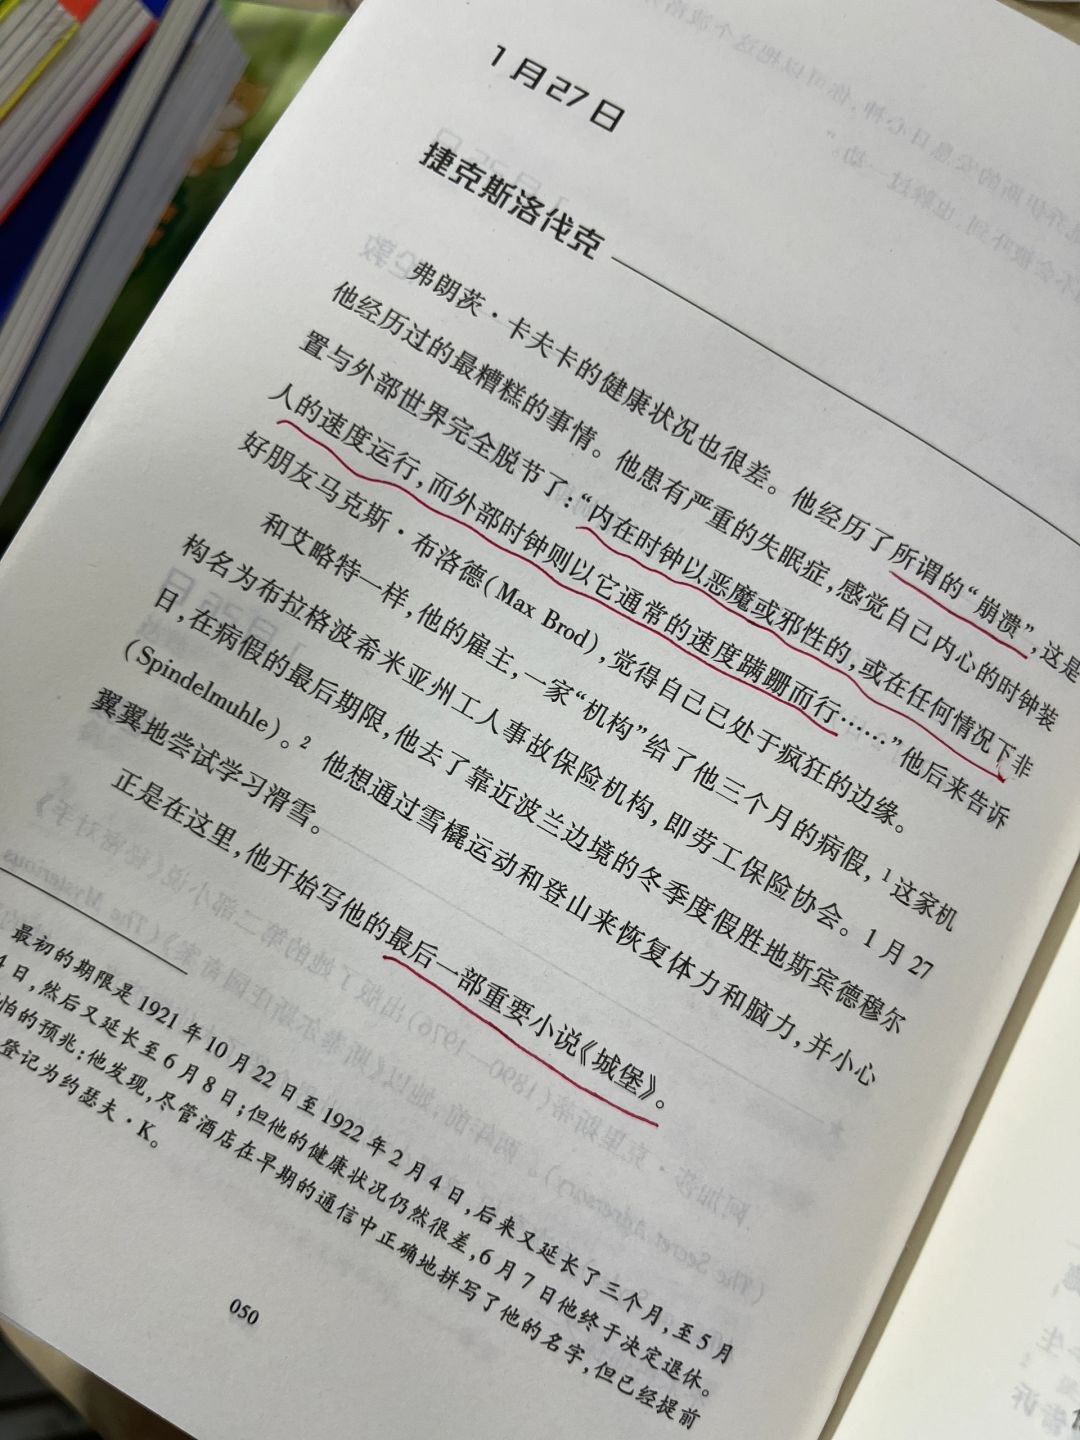 1月27日
捷克斯洛伐克
弗朗茨·卡夫卡的健康状况也很差。他经历了所谓的“崩溃”,这是
他经历过的最糟糕的事情。他患有严重的失眠症,感觉自己内心的时钟装
置与外部世界完全脱节了:“内在时钟以恶魔或邪性的,或在任何情况下非
人的速度运行,而外部时钟则以它通常的速度蹒跚而行……”他后来告诉
好朋友马克斯·布洛德(Max Brod),觉得自己已处于疯狂的边缘。
和艾略特一样,他的雇主,一家“机构”给了他三个月的病假,1这家机
构名为布拉格波希米亚州工人事故保险机构,即劳工保险协会。1月27
日,在病假的最后期限,他去了靠近波兰边境的冬季度假胜地斯宾德穆尔
(Spindelmuhle)。2 他想通过雪橇运动和登山来恢复体力和脑力,并小心
翼翼地尝试学习滑雪。
正是在这里,他开始写他的最后一部重要小说《城堡》。
最初的期限是1921年10月22日至1922年2月4日,后来又延长了三个月,至5月
4日,然后又延长至6月8日;但他的健康状况仍然很差,6月7日他终于决定退休。
怕的预兆:他发现,尽管酒店在早期的通信中正确地拼写了他的名字,但已经提前
登记为约瑟夫·K。
050